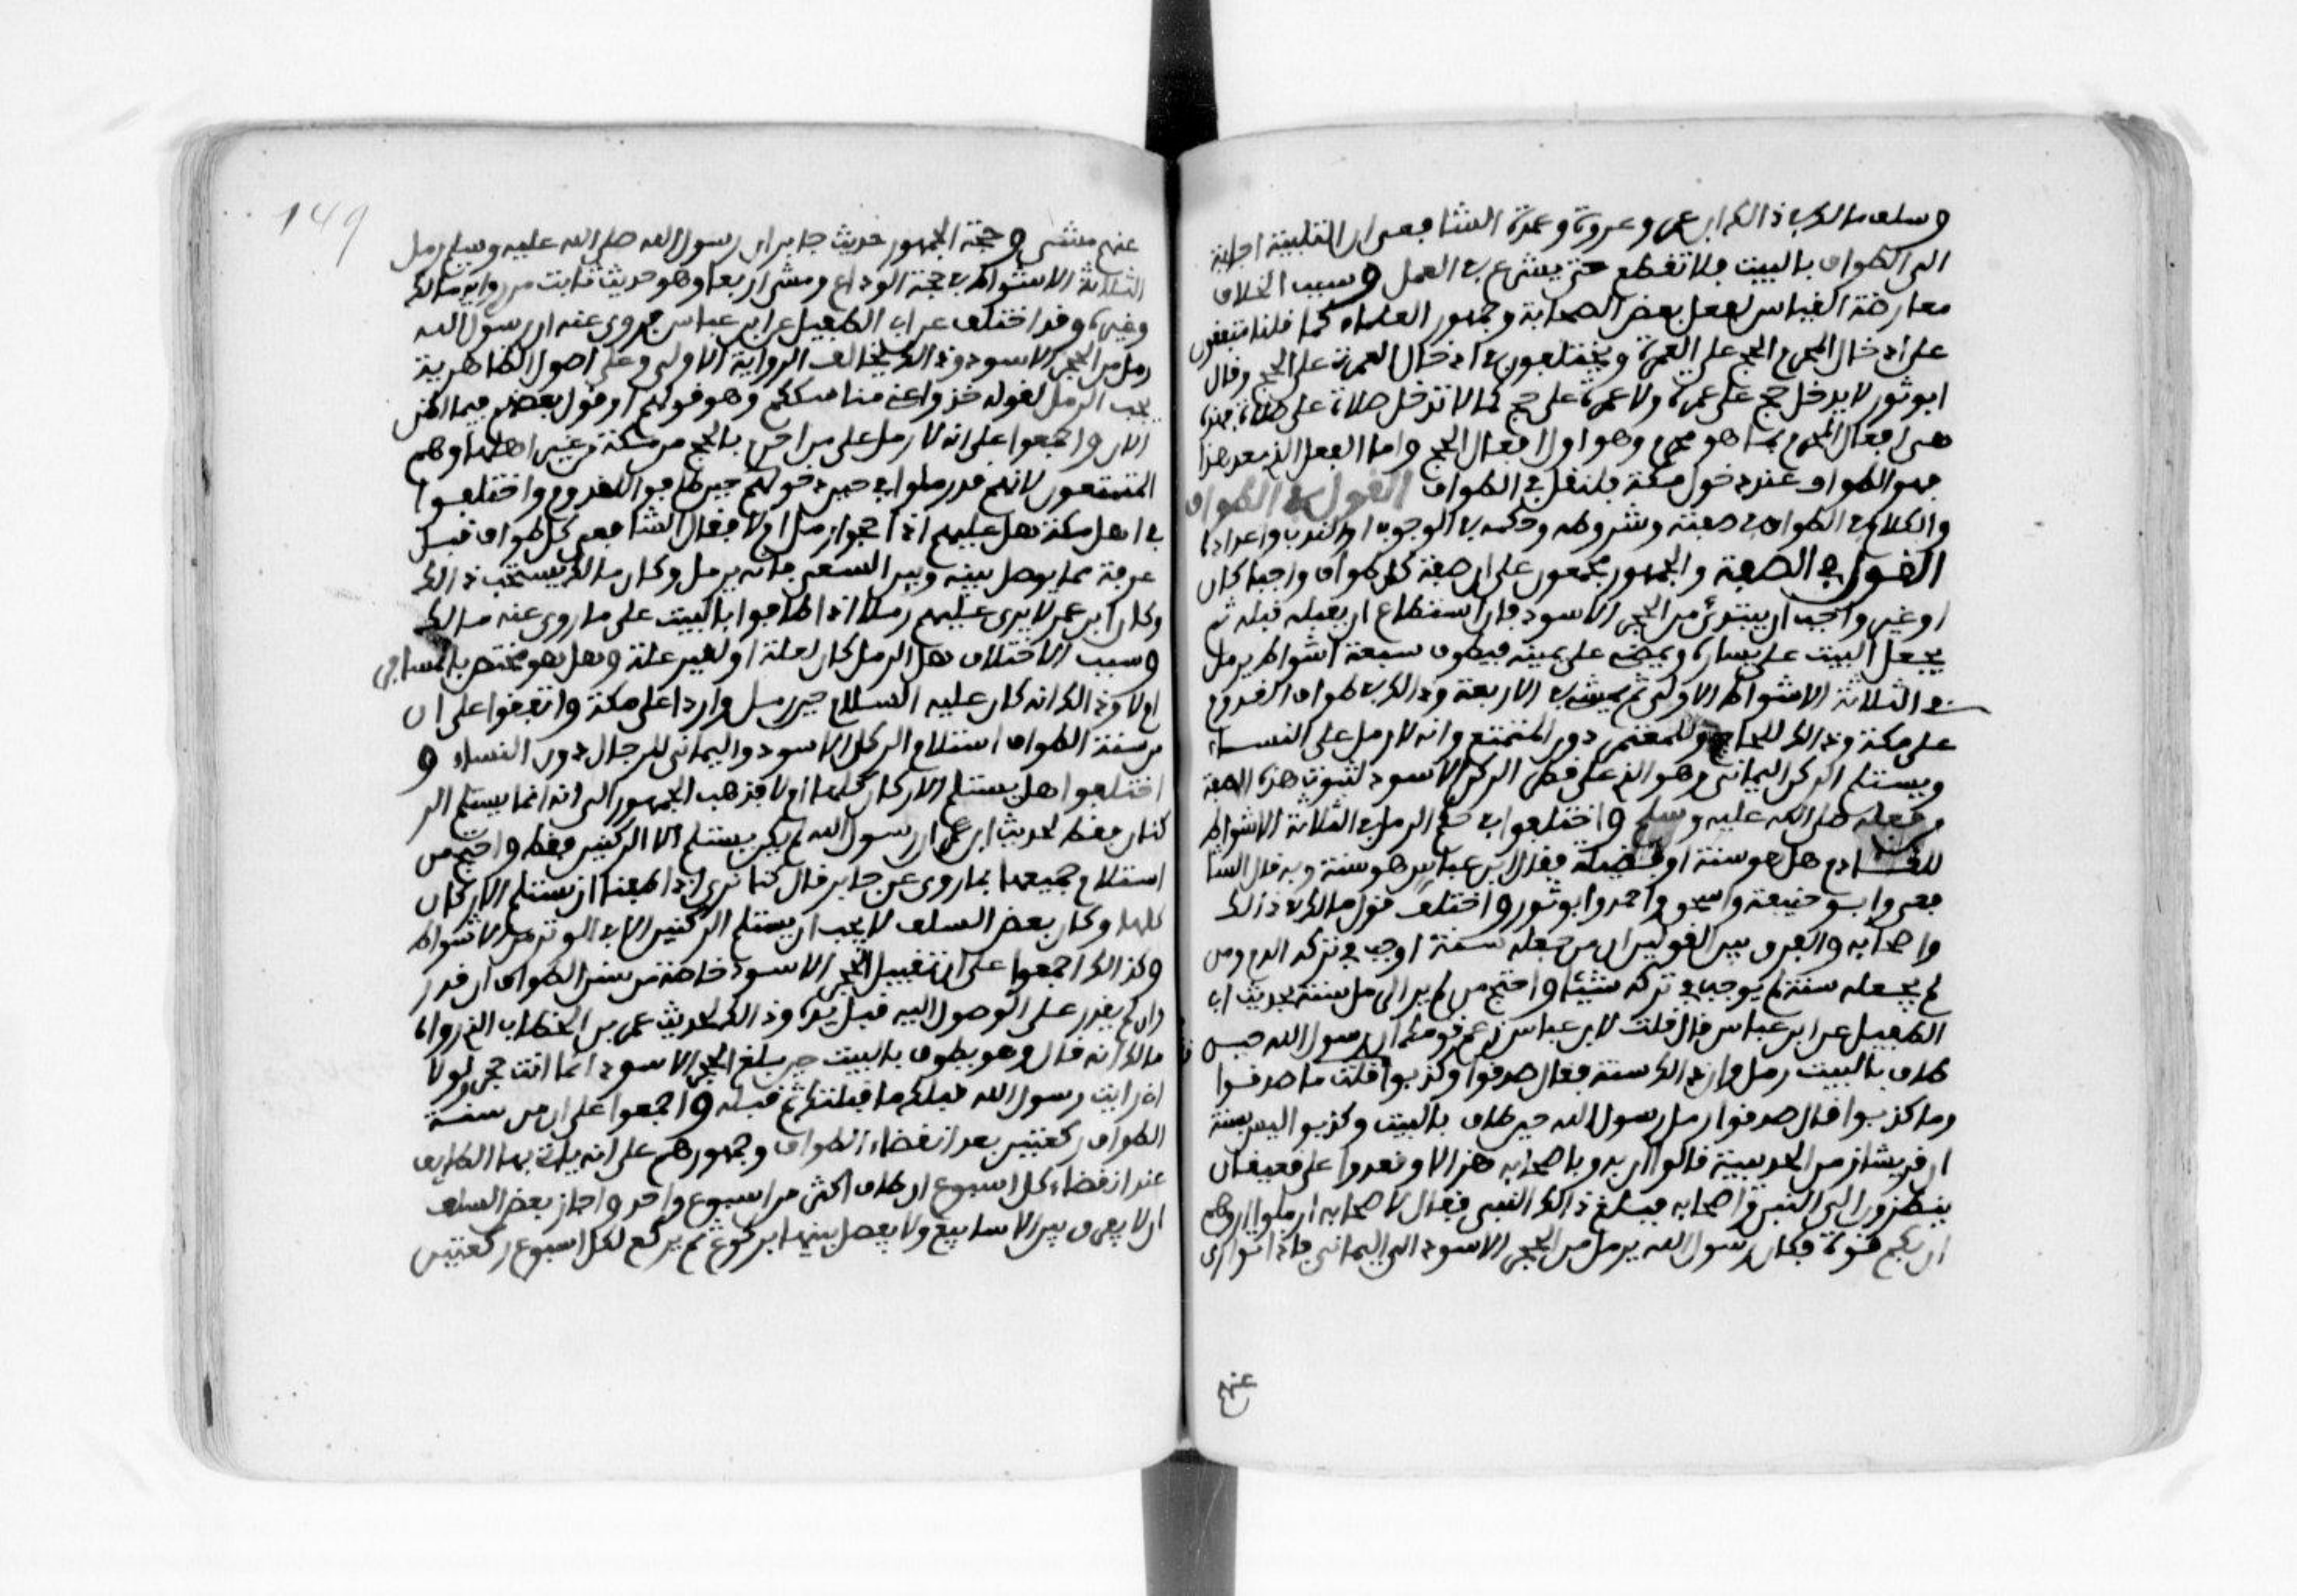 وسلف مالك في ذلك ابن عمر وعروة وعمدة الشافعي ان التلبية اجابة
الى الطواف بالبيت فلا تقطع حتى يشرع في العمل وسبب الخلاف
معارضة القياس لفعل بعض الصحابة وجمهور العلماء كما قلنا متفقون
على ادخال المحرم الحج على العمرة ويختلفون في ادخال العمرة على الحج وقال
ابو ثور لا يدخل حج على عمرة ولا عمرة على حج كما لا تدخل صلاة على صلاة فهذه
هي افعال المحرم بما هو محرم وهو اول افعال الحج واما الفعل الذي بعد هذا
فهو الطواف عند دخول مكة فلنقل في الطواف القول في الطواف
والكلام في الطواف في صفته وشروطه وحكمه في الوجوب او الندب واعداده
القول في الصفة والجمهور مجمعون على ان صفة كل طواف واجبا كان
او غير واجب ان يبتدئ من الحجر الاسود فان استطاع ان يقبله قبله ثم
يجعل البيت على يساره ويمضي على يمينه فيطوف سبعة اشواط يرمل
في الثلاثة الاشواط الاولى ثم يمشي في الاربعة وذلك في طواف القدوم
على مكة وذلك للحاج وللمعتمر دون المتمتع وانه لا رمل على النساء
ويستلم الركن اليماني وهو الذي على قطر الركن الاسود لثبوت هذه الصفة
من فعله صلى الله عليه وسلم واختلفوا في حكم الرمل في الثلاثة الاشواط
للقادم هل هو سنة او فضيلة فقال ابن عباس هو سنة وبه قال الشا
فعي وابو حنيفة واسحق واحمد وابو ثور واختلف قول مالك في ذلك
واصحابه والفرق بين القولين ان من جعله سنة اوجب في تركه الدم ومن
لم يجعله سنة لم يوجب في تركه شيئا واحتج من لم ير الرمل سنة بحديث ابي
الطفيل عن ابن عباس قال قلت لابن عباس زعم قومك ان رسول الله حين
طاف بالبيت رمل وان ذلك سنة فقال صدقوا وكذبوا قلت ما صدقوا
وما كذبوا قال صدقوا رمل رسول الله حين طاف بالبيت وكذبوا ليس بسنة
ان قريشا زمن الحديبية قالوا ان به وباصحابه هزلا وقعدوا على قعيقعان
ينظرون الى النبي واصحابه فبلغ ذلك النبي فقال لاصحابه ارملوا اروهم
ان بكم قوة فكان رسول الله يرمل من الحجر الاسود الى اليماني فاذا توارى
عنهم
149
عنهم مشى وحجة الجمهور حديث جابر ان رسول الله صلى الله عليه وسلم رمل
الثلاثة الاشواط في حجة الوداع ومشى اربعا وهو حديث ثابت من رواية مالك
وغيره وقد اختلف عن ابي الطفيل عن ابن عباس فروى عنه ان رسول الله
رمل من الحجر الاسود وذلك بخلاف الرواية الاولى وعلى اصول الظاهرية
يجب الرمل لقوله خذوا عني مناسككم وهو قولهم او قول بعضهم فيما اظن
الان واجمعوا على انه لا رمل على من احرم بالحج من مكة من غير اهلها وهم
المتمتعون لانهم قد رملوا في حين دخولهم حين طافوا للقدوم واختلفوا
في اهل مكة هل عليهم اذا حجوا رمل ام لا فقال الشافعي كل طواف قبل
عرفة مما يوصل بينه وبين السعي فانه يرمل وكان مالك يستحب ذلك
وكان ابن عمر لا يرى عليهم رملا اذا طافوا بالبيت على ما روى عنه مالك
وسبب الاختلاف هل الرمل كان لعلة او لغير علة وهل هو مختص بالمسافر
ام لا وذلك انه كان عليه السلام حين رمل واردا على مكة واتفقوا على ان
من سنة الطواف استلام الركن الاسود واليماني للرجال دون النساء و
اختلفوا هل يستلم الاركان كلها ام لا فذهب الجمهور الى انه انما يستلم الر
كنان فقط لحديث ابن عمر ان رسول الله لم يكن يستلم الا الركنين فقط واحتج من
استلام جميعها بما روى عن جابر قال كنا نرى اذا طفنا ان نستلم الاركان
كلها وكان بعض السلف لا يحب ان يستلم الركنين الا في الوتر من الاشواط
وكذلك اجمعوا على ان تقبيل الحجر الاسود خاصة من سنن الطواف ان قدر
وان لم يقدر على الوصول اليه قبل يده وذلك لحديث عمر بن الخطاب الذي رواه
مالك انه قال وهو يطوف بالبيت حين بلغ الحجر الاسود انما انت حجر ولولا
اني رايت رسول الله قبلك ما قبلتك ثم قبله واجمعوا على ان من سنة
الطواف ركعتين بعد انقضاء الطواف وجمهورهم على انه ياتي بها الطايف
عند انقضاء كل اسبوع ان طاف اكثر من اسبوع واحد واجاز بعض السلف
ان لا يفرق بين الاسابيع ولا يفصل بينها بركوع ثم يركع لكل اسبوع ركعتين